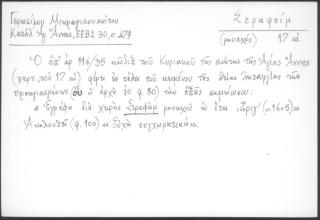 Γερασίμου Μικραγιαννανίτου
Κατάλ. Αγ. Άννης, ΕΕΒΣ 30, σ. 479
Σεραφείμ
(μοναχός) 17 αἰ.
Ὁ ὑπ' ἀρ 116/35 κώδιξ τοῦ Κυριακοῦ τῆς σκήτεως τῆς Ἁγίας Ἄννης
(χαρτ., τοῦ 17 αἰ) φέρει ἐν τέλει τοῦ κειμένου τῆς θείας λειτουργίας τῶν
προηγιασμένων (οὗ ἡ ἀρχὴ ἐν φ 80) τὸ ἑξῆς σημείωμα:
« Ἐγράφη διὰ χειρὸς Σεραφεὶμ μοναχοῦ ἐν ἔτει ͵ζριγ' (=1605)»
Ἀκολουθεῖ (φ. 100) « Εὐχὴ συγχωρητικὴ».